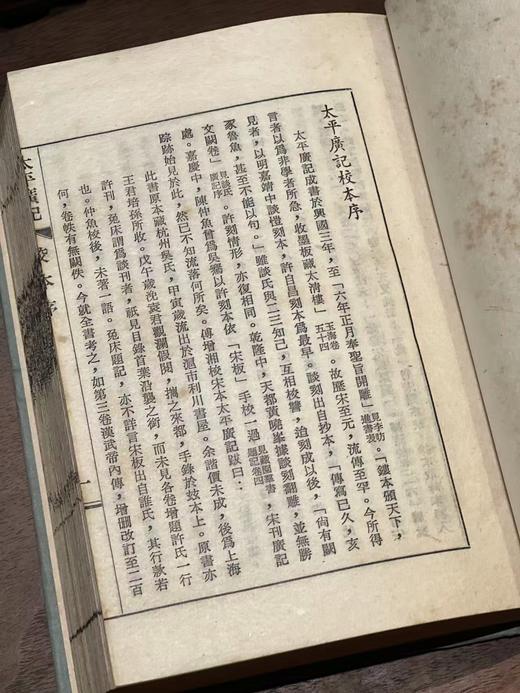 太平廣記校本序
太平廣記成書於興國三年,至「六年正月奉聖旨開雕」見李昉進書表。「鏤本頒天下,
言者以爲非學者所急,收墨板藏太清樓」玉海卷五十四。故歷宋至元,流傳至罕。今所得
見者,以明嘉靖中談愷刻本,許自昌刻本爲最早。談刻出自抄本,「傳寫已久,亥
豕魯魚,甚至不能以句。」雖談氏與二三知己,互相校讐,迨刻成以後,「尚有闕
文闕卷」見談氏廣記序。許刻情形,亦復相同。乾隆中,天都黃曉峯據談刻翻雕,並無勝
處。嘉慶中,陳仲魚曾爲吳騫以許刻本依「宋板」手校一過見藏園羣書題記卷四,宋刊廣記
踪跡始見於此,然已不知流落何所矣。傅增湘校宋本太平廣記跋曰:
此書原本藏杭州吳氏,甲寅歲流出於滬市利川書屋。余諧價未成,後爲上海
王君培孫所收。戊午歲沈君觀瀾假閱,攜之來都,手錄於玆本上。原書亦
許刊,兔床謂爲談刊者,祇見目錄首葉沿襲之銜,而未見各卷增題許氏一行
也。仲魚校後,未著一語。兔床題記,亦不詳言宋板出自誰氏,其行款若
何,卷帙有無闕佚。今就全書考之,如第三卷漢武帝內傳,增刪改訂至二百
太平廣記 校本序 一